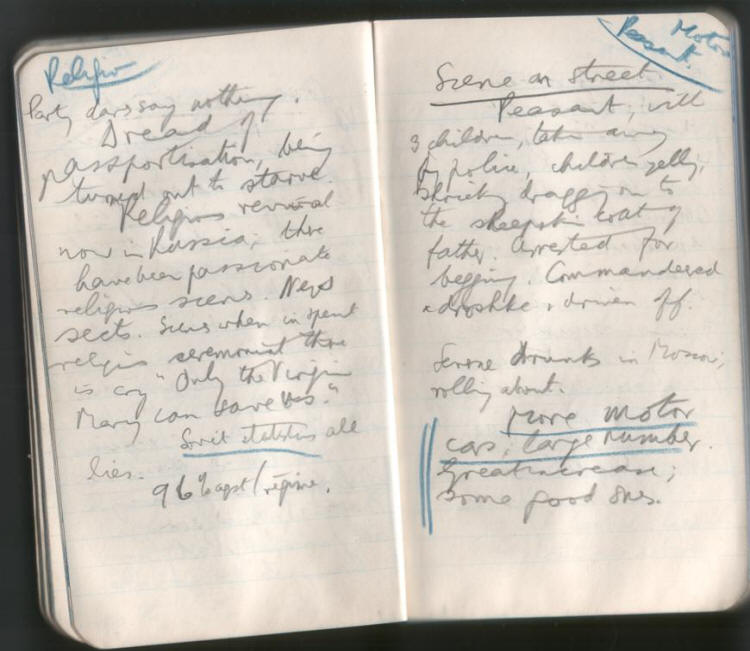 Religion
Party dare say nothing.
Dread of
passportisation, being
turned out to starve.
Religious revival
now in Russia; there
have been passionate
religious scenes. New
sects. Scenes when in
religious there
is cry "Only the Virgin
Mary can save us."
Soviet statistics all
lies.
96% agst/régime.
Motor
Peasant.
Scene on street
Peasant, with
3 children, taken away
by police, children yelling,
shrieking dragging on to
the sheepskin coat of
father. Arrested for
begging. Commandeered
a droshke & driven off.
Some drunks in Moscow;
rolling about.
More motor
cars, large number.
Great increase;
some good ones.